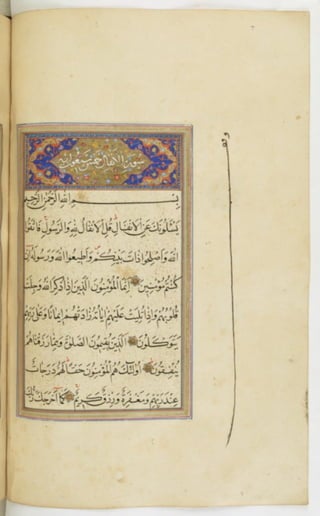 سورة الانفال خمس وسبعون اية
بِسْمِ اللهِ الرَّحْمٰنِ الرَّحِيمِ
يَسْئَلُونَكَ عَنِ الْاَنْفَالِ قُلِ الْاَنْفَالُ لِلّٰهِ وَالرَّسُولِ فَاتَّقُوا
اللهَ وَاَصْلِحُوا ذَاتَ بَيْنِكُمْ وَاَطِيعُوا اللهَ وَرَسُولَهُ اِنْ
كُنْتُمْ مُؤْمِنِينَ اِنَّمَا الْمُؤْمِنُونَ الَّذِينَ اِذَا ذُكِرَ اللهُ وَجِلَتْ
قُلُوبُهُمْ وَاِذَا تُلِيَتْ عَلَيْهِمْ اٰيَاتُهُ زَادَتْهُمْ اِيمَانًا وَعَلٰى رَبِّهِمْ
يَتَوَكَّلُونَ الَّذِينَ يُقِيمُونَ الصَّلٰوةَ وَمِمَّا رَزَقْنَاهُمْ
يُنْفِقُونَ اُولٰئِكَ هُمُ الْمُؤْمِنُونَ حَقًّا لَهُمْ دَرَجَاتٌ
عِنْدَ رَبِّهِمْ وَمَغْفِرَةٌ وَرِزْقٌ كَرِيمٌ كَمَا اَخْرَجَكَ رَبُّكَ